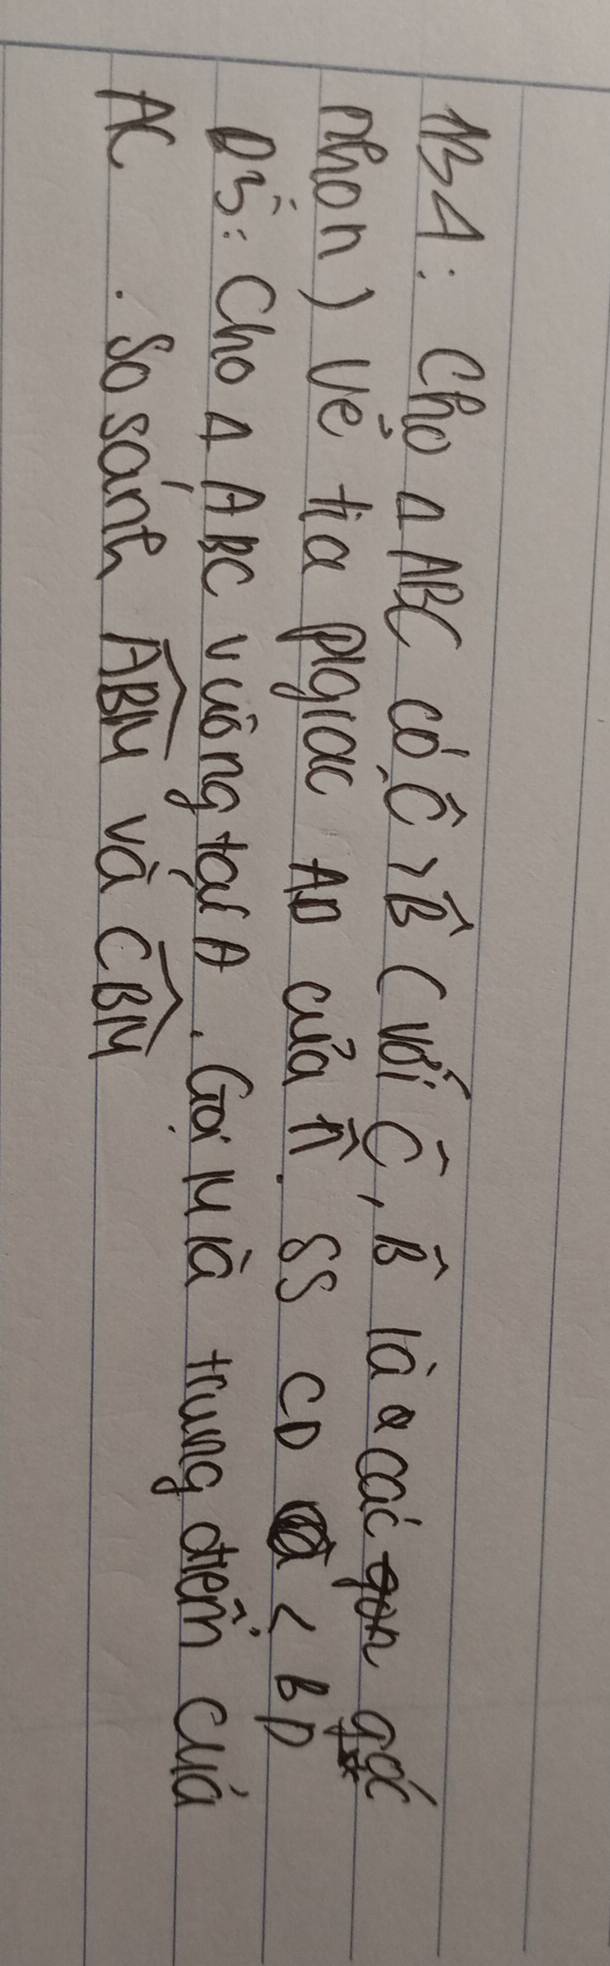 B4: Cho Δ ABC có Ĉ > B̂ (với Ĉ, B̂ là các góc
nhọn) Vẽ tia p/giác AD của Â. SS CD < BD
B5: Cho Δ ABC vuông tại A. Gọi M là trung điểm của
AC. So sánh ABM và CBM